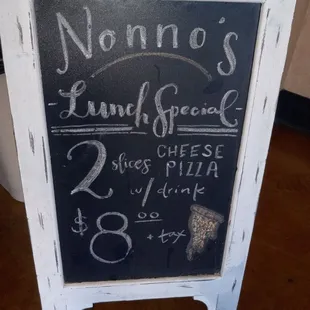 Nonno's
Lunch Special
2 slices CHEESE PIZZA
w/ drink
$8.00 + tax